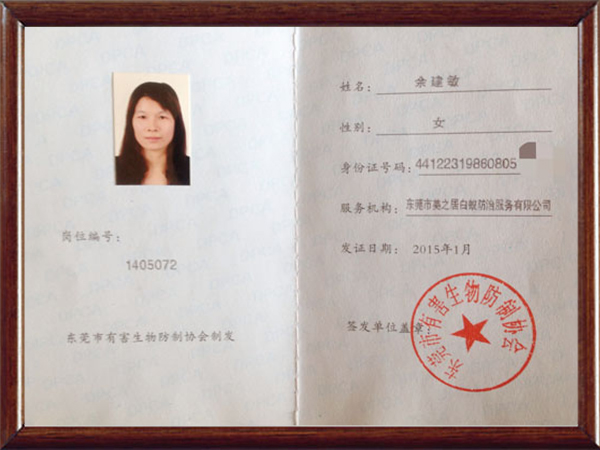 岗位编号：
1405072
东莞市有害生物防制协会制发
姓名：余建敏
性别：女
身份证号码：44122319860805
服务机构：东莞市美之居白蚁防治服务有限公司
发证日期：2015年1月
签发单位盖章：
东莞市有害生物防制协会